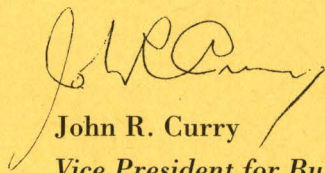 John R. Curry
John R. Curry
Vice President for Bu